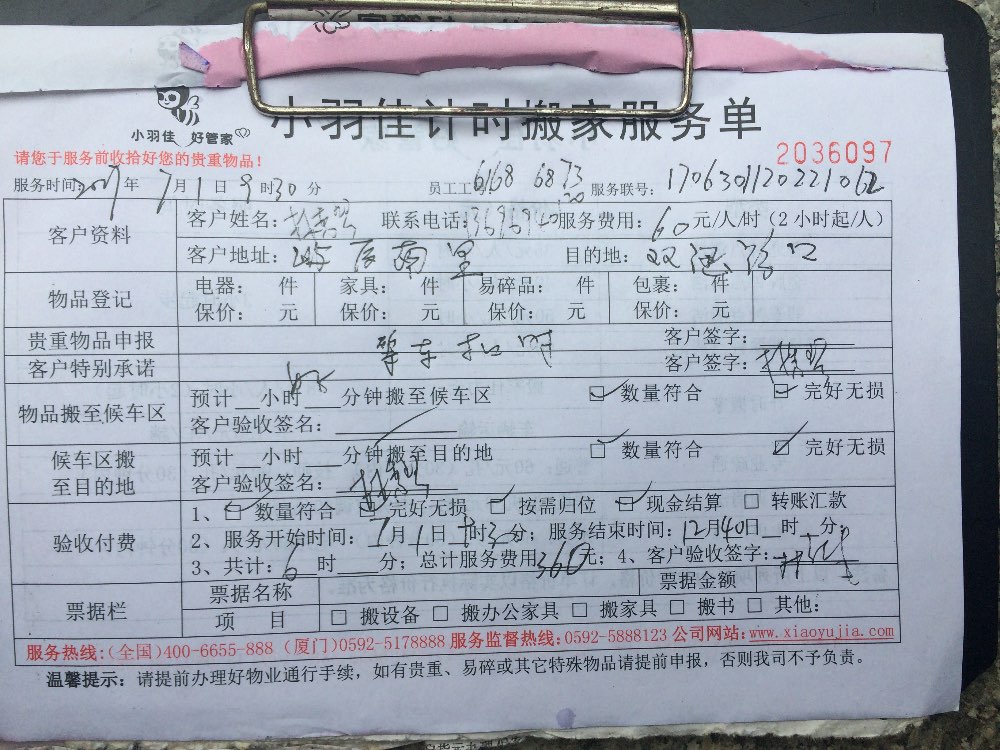 小羽佳 好管家
小羽佳计时搬家服务单
请您于服务前收拾好您的贵重物品！
2036097
服务时间：2017年7月1日9时30分 员工工 6168 6873 服务联号：
客户资料 客户姓名： 联系电话： 服务费用：60元/人/时（2小时起/人）
客户地址： 目的地：双涵路口
物品登记 电器： 件 家具： 件 易碎品： 件 包裹： 件
保价： 元 保价： 元 保价： 元 保价： 元
贵重物品申报 客户签字：
客户特别承诺 客户签字：
物品搬至候车区 预计__小时 分钟搬至候车区 数量符合 完好无损
客户验收签名：
候车区搬至目的地 预计__小时__分钟搬至目的地 数量符合 完好无损
客户验收签名：
验收付费 1、数量符合 完好无损 按需归位 现金结算 转账汇款
2、服务开始时间：7月1日 时 分；服务结束时间：12月40日_时_分；
3、共计：6时__分；总计服务费用360元；4、客户验收签字：
票据栏 票据名称 票据金额
项 目 搬设备 搬办公家具 搬家具 搬书 其他：
服务热线：（全国）400-6655-888（厦门）0592-5178888 服务监督热线：0592-5888123 公司网站：www.xiaoyujia.com
温馨提示：请提前办理好物业通行手续，如有贵重、易碎或其它特殊物品请提前申报，否则我司不予负责。